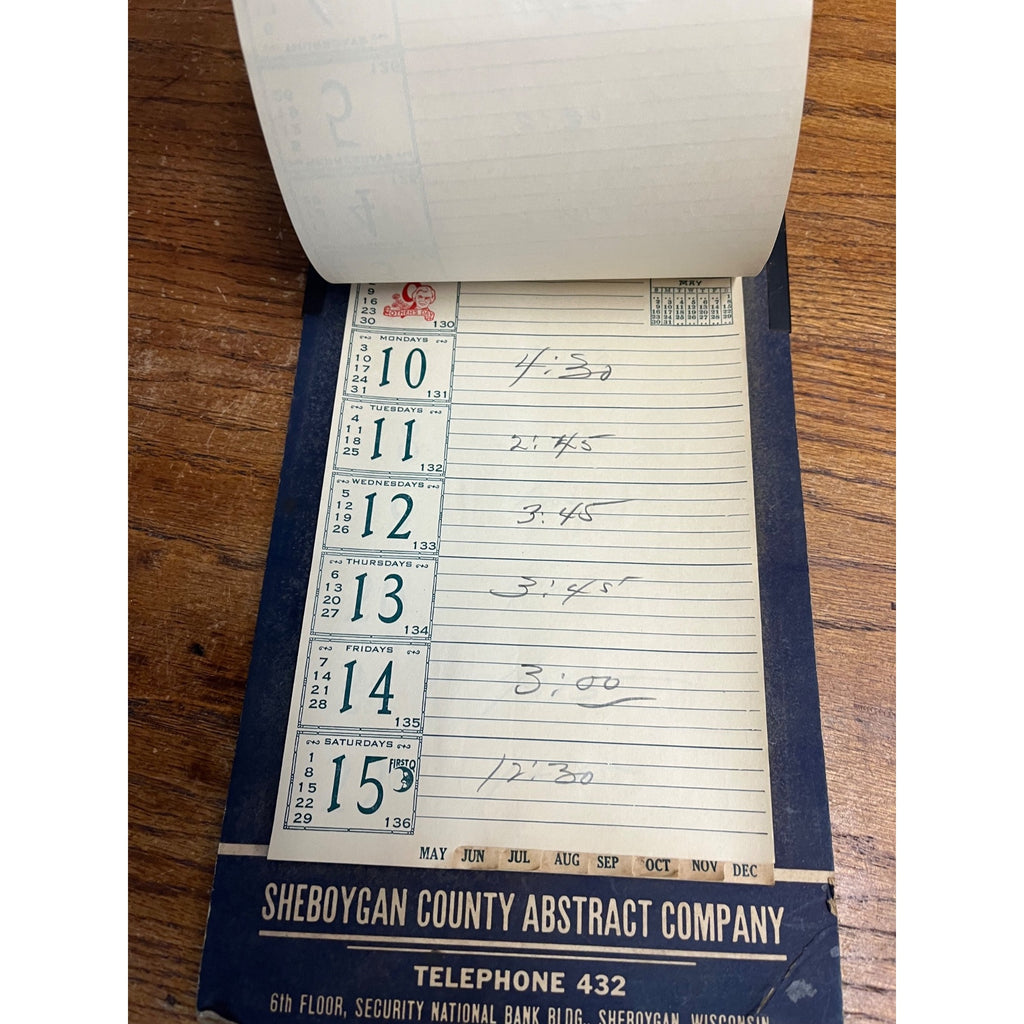 9
16
23
30
9
MOTHER'S DAY
130
MAY
S M T W T F S
MONDAYS
3
10
17
24
31
10
131
4:30
TUESDAYS
4
11
18
25
11
132
2:45
WEDNESDAYS
5
12
19
26
12
133
3:45
THURSDAYS
6
13
20
27
13
134
3:45
FRIDAYS
7
14
21
28
14
135
3:00
SATURDAYS
1
8
15
22
29
15
FIRST Q
136
12:30
MAY JUN JUL AUG SEP OCT NOV DEC
SHEBOYGAN COUNTY ABSTRACT COMPANY
TELEPHONE 432
6th FLOOR, SECURITY NATIONAL BANK BLDG., SHEBOYGAN, WISCONSIN